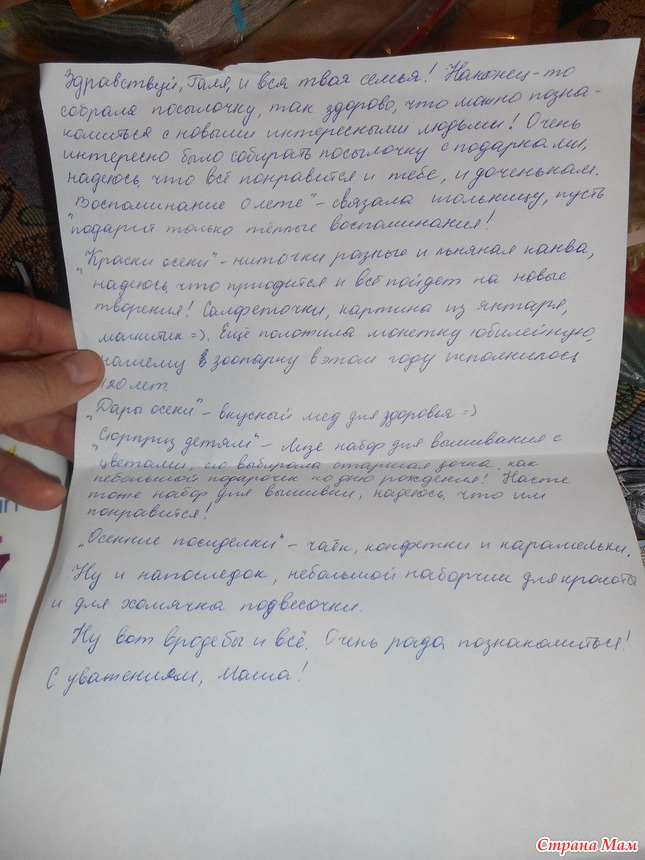 Здравствуй, Галя, и вся твоя семья! Наконец-то
собрала посылочку, так здорово, что можно позна-
комиться с новыми интересными людьми! Очень
интересно было собирать посылочку с подарками,
надеюсь, что всё понравится и тебе, и доченькам.
"Воспоминание о лете" - связала игольницу, пусть
подарит только тёплые воспоминания!
"Краски осени" - ниточки разные и льняная канва,
надеюсь, что пригодится и всё пойдет на новые
творения! Салфеточки, картина из янтаря,
магнитик =). Ещё положила монетку юбилейную,
нашему зоопарку в этом году исполнилось
120 лет.
"Дары осени" - вкусный мед для здоровья =)
"Сюрприз детям" - Лизе набор для вышивания с
цветами, его выбирала старшая дочка, как
небольшой подарочек ко дню рождения! Насте
тоже набор для вышивки, надеюсь, что им
понравится!
"Осенние посиделки" - чаёк, конфетки и карамельки,
Ну и напоследок, небольшой наборчик для красоты
и для хомячка подвесочки.
Ну вот вродебы и всё. Очень рада познакомиться!
С уважением, Маша!
Страна Мам